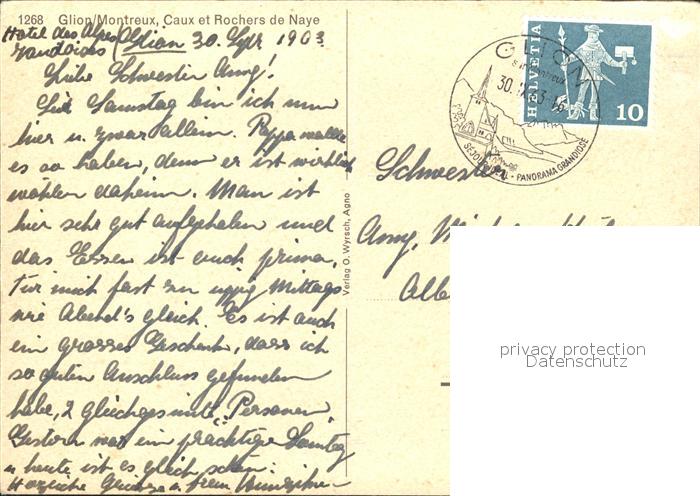 1268 Glion/Montreux, Caux et Rochers de Naye
Hotel des Alpes Glion 30. Sept 1963
Vaudoises
Liebe Schwester Anny!
Seit Samstag bin ich nun
hier u. zwar allein. Pappa wollte
es so haben, denn er ist wirklich
wohler daheim. Man ist
hier sehr gut aufgehoben und
das Essen ist auch prima,
für mich fast zu üppig Mittags
wie Abend's gleich. Es ist auch
ein grosses Geschenk, dass ich
so guten Anschluss gefunden
habe, 2 gleichgesinnte Personen.
Gestern war ein prächtiger Sonntag
u heute ist es gleich schön.
Herzliche Grüsse u.
Verlag O. Wyrsch, Agno
GLION
s/Montreux
30.IX.63-16
SEJOUR IDEAL - PANORAMA GRANDIOSE
HELVETIA
10
Schwester
Anny,
Alb
privacy protection
Datenschutz